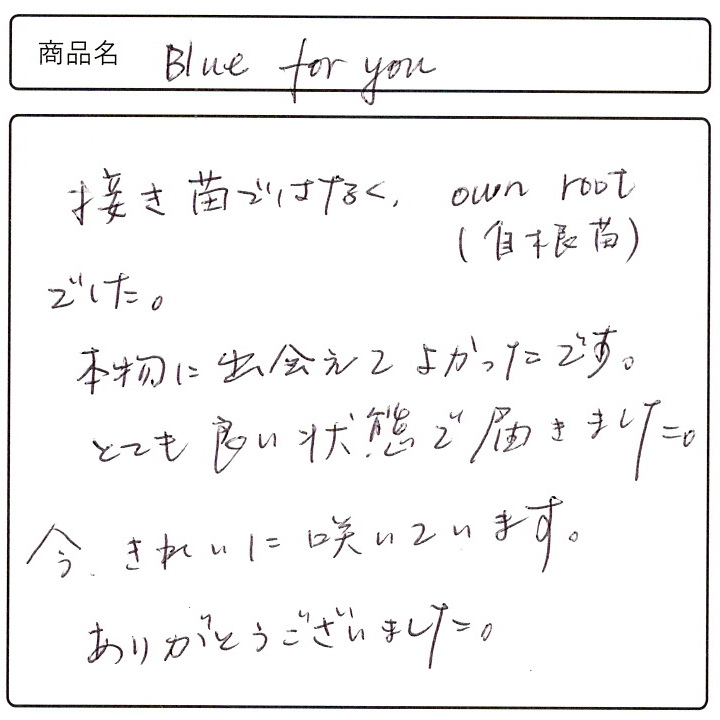 商品名 Blue for you
接き苗ではなく、own root
(自根苗)
でした。
本物に出会えてよかったです。
とても良い状態で届きました。
今、きれいに咲いています。
ありがとうございました。